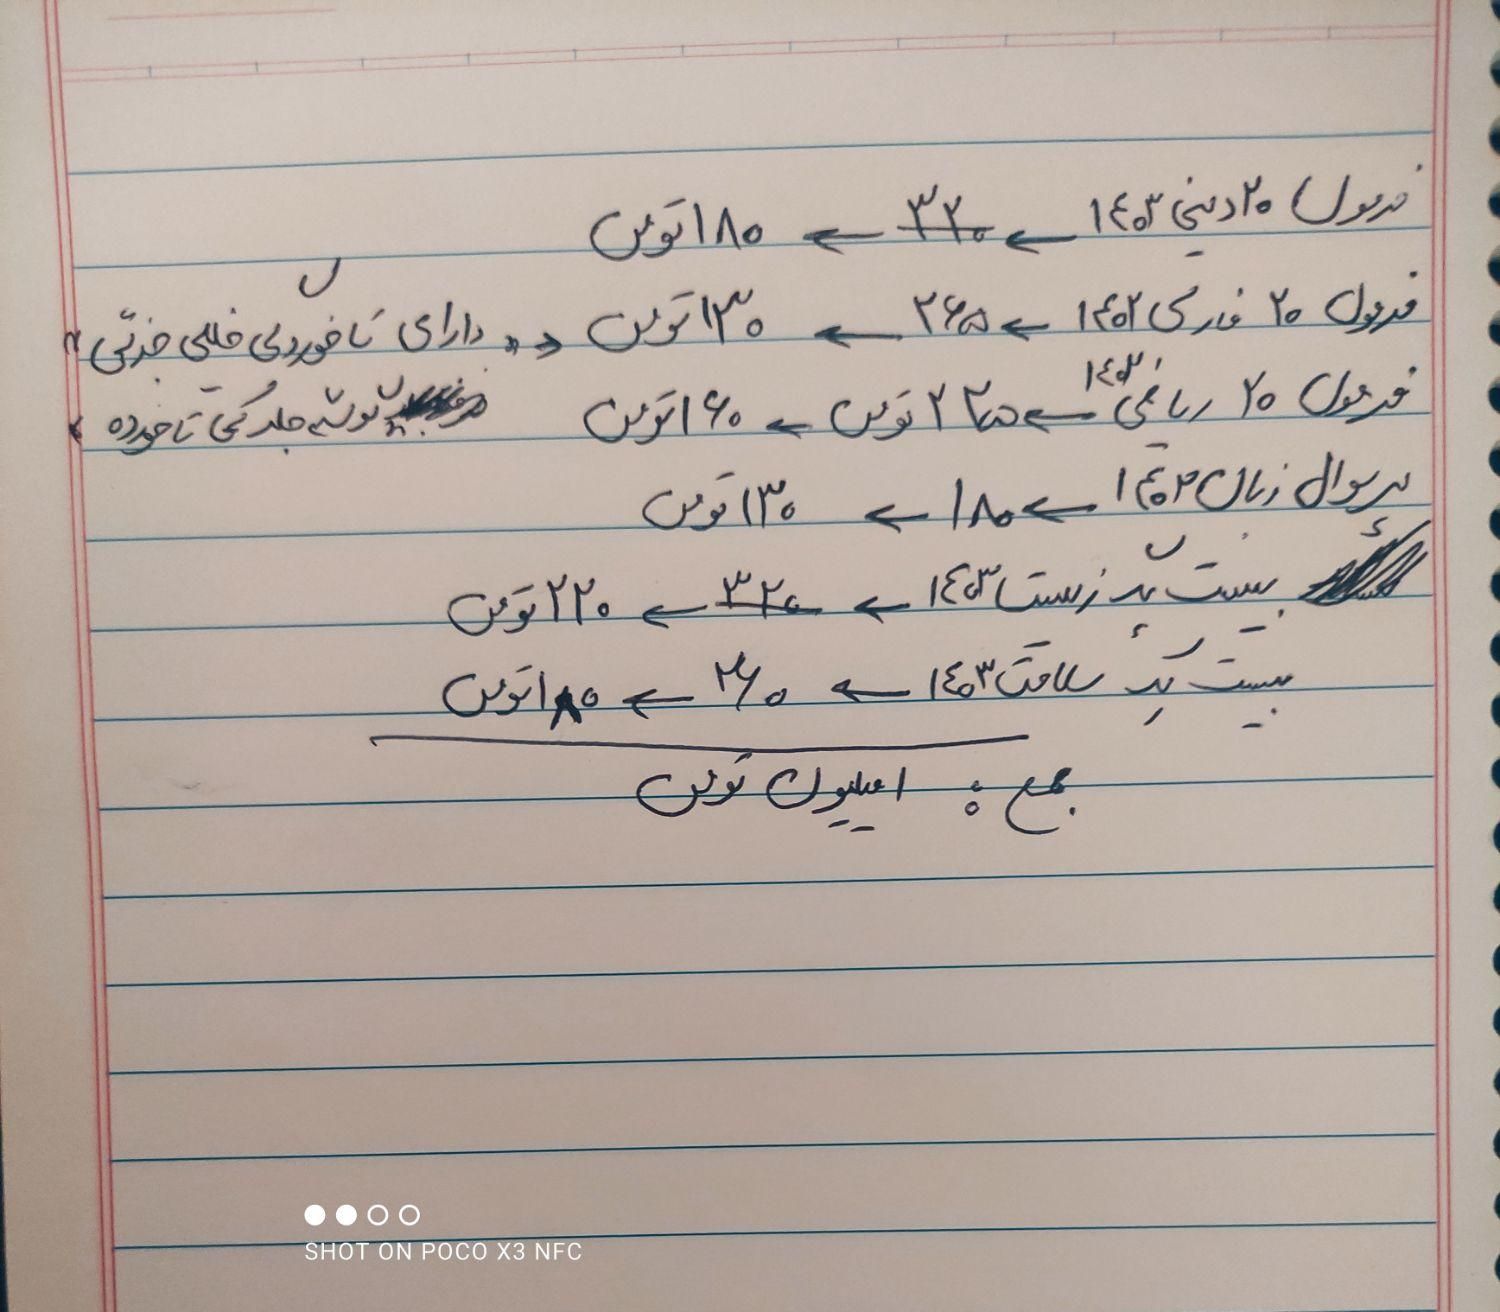 فرمول ۲۰ دینی ۱۴۰۳ ← ۳۲۰ ← ۱۸۰ تومن
فرمول ۲۰ فارسی ۱۴۰۲ ← ۲۶۵ ← ۱۳۰ تومن « دارای تاخوردگی خیلی جزئی
فرمول ۲۰ ریاضی ۱۴۰۳ ← ۲۳۵ تومن ← ۱۶۰ تومن گوشه جلد کمی تاخورده »
پرسوال زبان ۱۴۰۳ ← ۱۸۰ ← ۱۳۰ تومن
بیست پک زیست ۱۴۰۳ ← ۳۲۰ ← ۲۲۰ تومن
بیست پک سلامت ۱۴۰۳ ← ۲۶۰ ← ۱۸۰ تومن
جمع : ۱ میلیون تومن
SHOT ON POCO X3 NFC